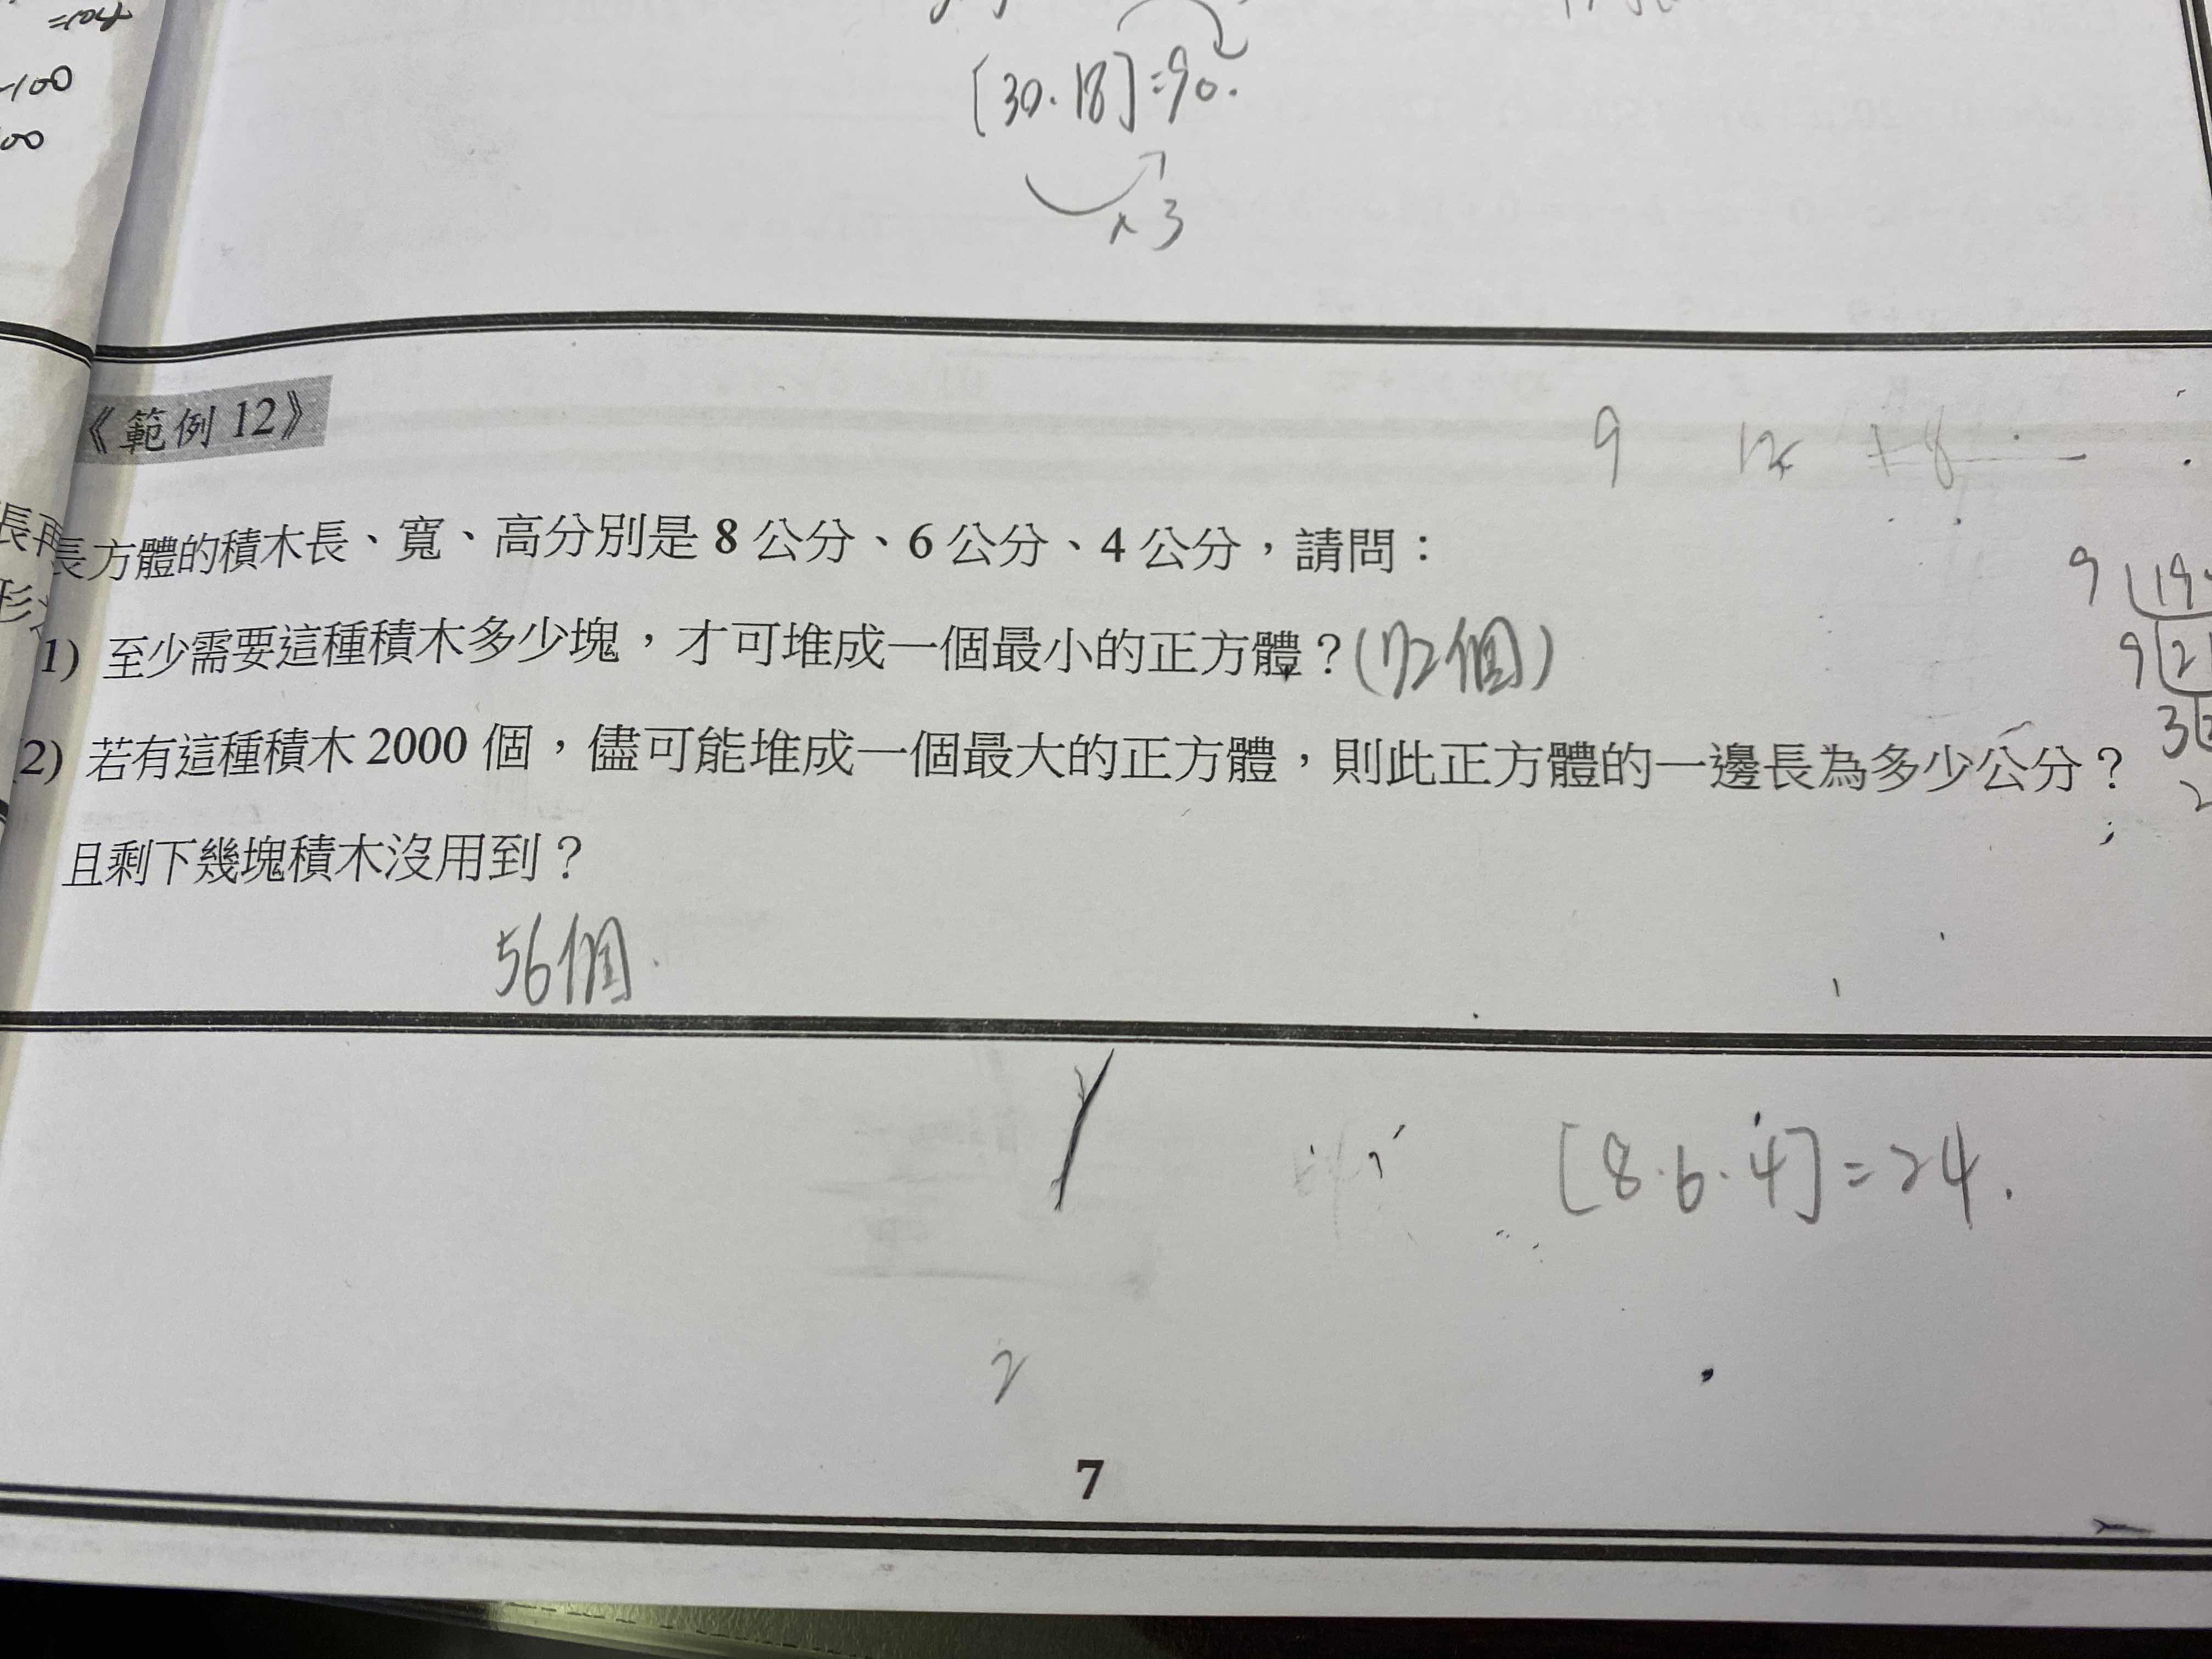 -100
00
[30.18]=90.
×3
《範例 12》
9 12 18
長方體的積木長、寬、高分別是 8 公分、6 公分、4 公分，請問：
1) 至少需要這種積木多少塊，才可堆成一個最小的正方體？(72個)
2) 若有這種積木 2000 個，儘可能堆成一個最大的正方體，則此正方體的一邊長為多少公分？
且剩下幾塊積木沒用到？
56個.
[8.6.4]=24.
2
7